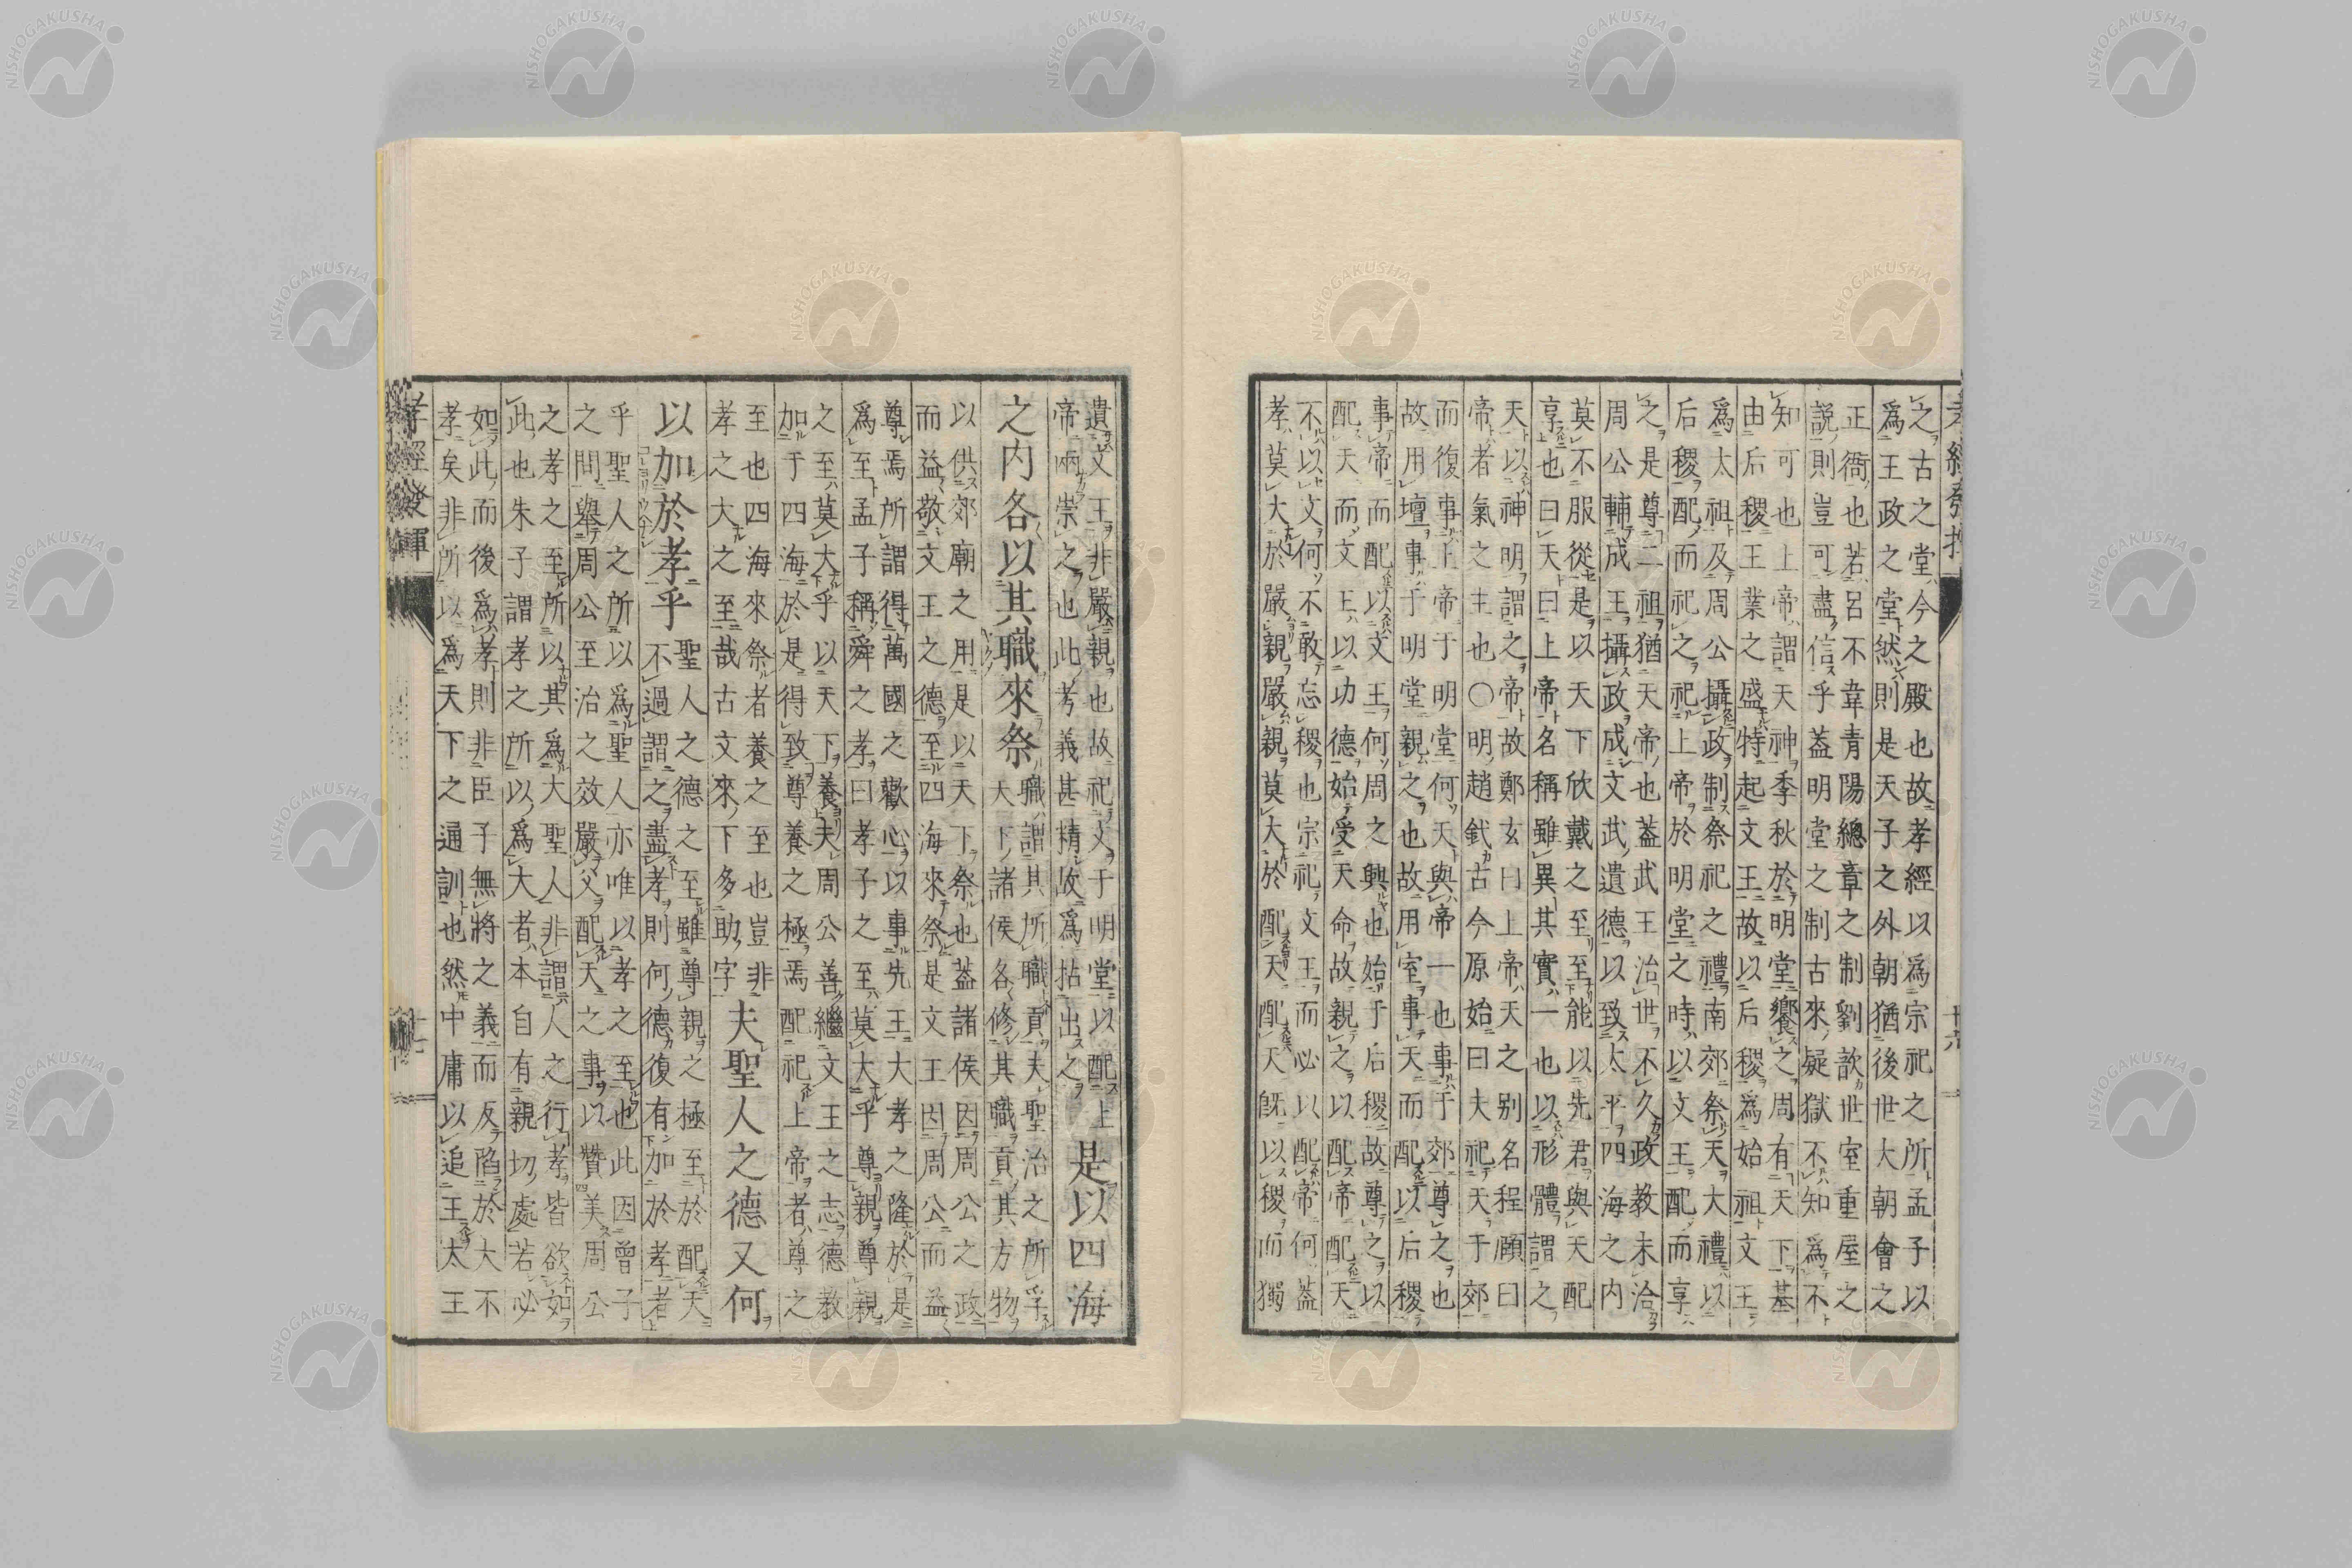 孝經發揮
十六
之古之堂今之殿也故孝經以爲宗祀之所孟子以
爲王政之堂然則是天子之外朝猶後世大朝會之
正衙也若呂不韋青陽總章之制劉歆世室重屋之
説則豈可盡信乎葢明堂之制古來疑獄不知爲不
知可也上帝謂天神季秋於明堂饗之周有天下基
由后稷王業之盛特起文王故以后稷爲始祖文王
爲太祖及周公攝政制祭祀之禮南郊祭天大禮以
后稷配而祀之祀上帝於明堂之時以文王配而享
之是尊二祖猶天帝也葢武王治世不久政教未洽
周公輔成王攝政成文武遺德以致太平四海之内
莫不服從是以天下欣戴之至至能以先君與天配
享也曰天曰上帝名稱雖異其實一也以形體謂之
天以神明謂之帝故鄭玄曰上帝天之别名程頤曰
帝者氣之主也○明趙釴古今原始曰夫祀天于郊
而復事上帝于明堂何天與帝一也事于郊尊之也
故用壇事于明堂親之也故用室事天而配以后稷
事帝而配以文王何周之興也始于后稷故尊之以
配天而文王以功德始受天命故親之以配帝配天
不以文何不敢忘稷也宗祀文王而必以配帝何葢
孝莫大於嚴親嚴親莫大於配天配天旣以稷而獨
遺文王非嚴親也故祀文于明堂以配上
帝兩崇之也此考義甚精故爲拈出之
是以四海
之内各以其職來祭
職謂其所職貢夫聖治之所孚
天下諸侯各修其職貢其方物
以供郊廟之用是以天下祭也葢諸侯因周公之政
而益敬文王之德至四海來祭是文王因周公而益
尊焉所謂得萬國之歡心以事先王大孝之隆於是
爲至孟子稱舜之孝曰孝子之至莫大乎尊親尊親
之至莫大乎以天下養夫周公善繼文王之志德教
加于四海於是得致尊養之極焉配祀上帝者尊之
至也四海來祭者養之至也豈非
孝之大之至哉古文來下多助字
夫聖人之德又何
以加於孝乎
聖人之德之至雖尊親之極至於配天
不過謂之盡孝則何德復有加於孝者
乎聖人之所以爲聖人亦唯以孝之至也此因曾子
之問舉周公至治之效嚴父配天之事以贊美周公
之孝之至所以其爲大聖人非謂人之行孝皆欲如
此也朱子謂孝之所以爲大者本自有親切處若必
如此而後爲孝則非臣子無將之義而反陷於大不
孝矣非所以爲天下之通訓也然中庸以追王太王
孝經發揮
十七